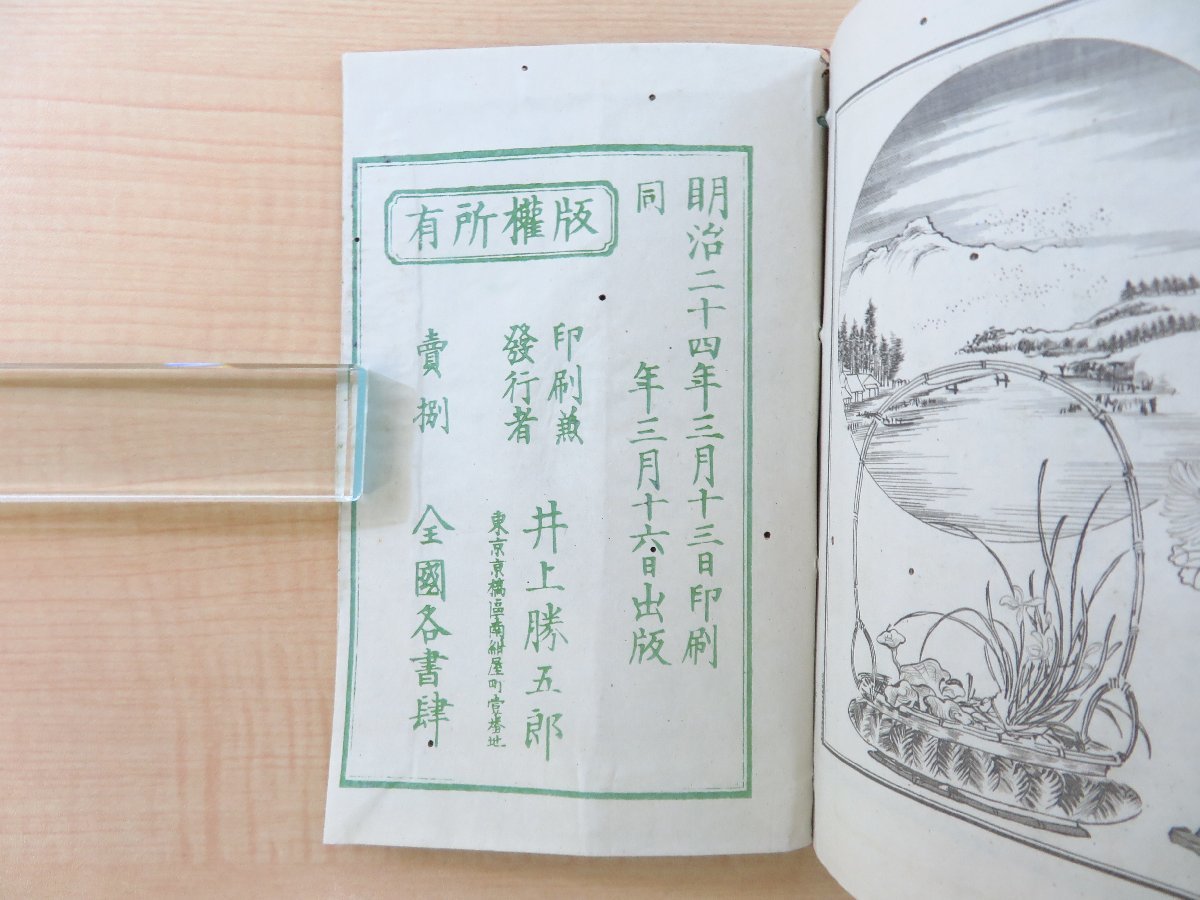 明治二十四年三月十三日印刷
同年三月十六日出版
版權所有
印刷兼
發行者
井上勝五郎
東京京橋區南紺屋町壹番地
賣捌 全國各書肆